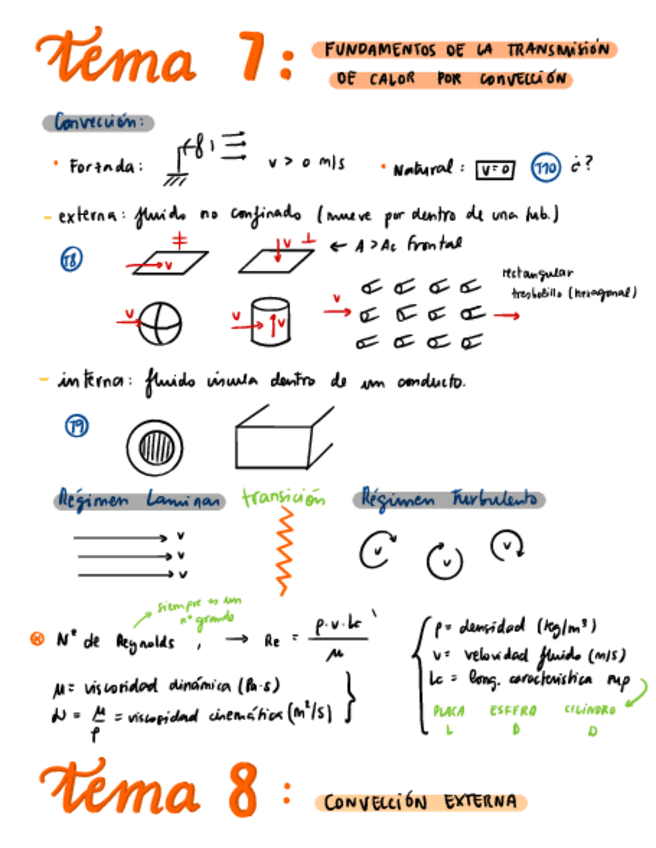 tema 7:
FUNDAMENTOS DE LA TRANSMISIÓN
DE CALOR POR CONVECCIÓN
Convección:
• Forzada: v > 0 m/s • Natural: v=0 T10 ċ?
- externa: fluido no confinado (mueve por dentro de una tub.)
T8 v v ⊥ ← A > Ac frontal
v v v v rectangular
tresbolillo (hexagonal)
- interna: fluido circula dentro de un conducto.
T9
Régimen Laminar transición Régimen Turbulento
v v v v v v
siempre es un
nº grande
Nº de Reynolds, → Re = ρ·v·Lc / μ
ρ = densidad (kg/m³)
v = velocidad fluido (m/s)
Lc = long. característica sup
PLACA ESFERA CILINDRO
L D D
μ = viscosidad dinámica (Pa·s)
ν = μ/ρ = viscosidad cinemática (m²/s)
tema 8:
CONVECCIÓN EXTERNA